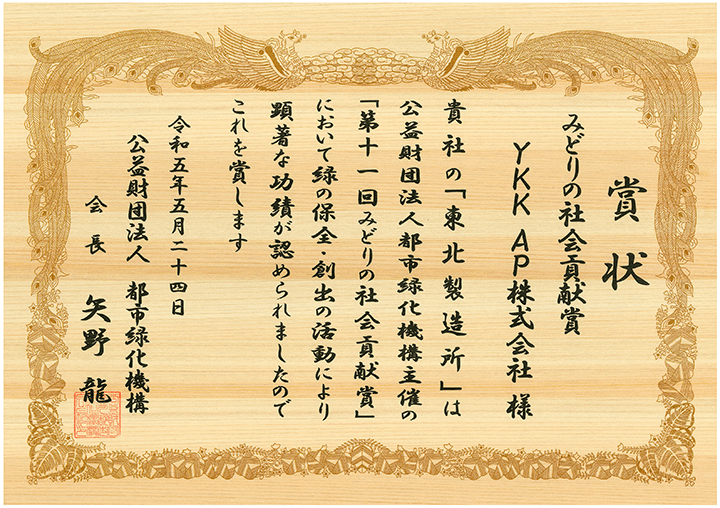 賞状
みどりの社会貢献賞
YKK AP株式会社 様
貴社の「東北製造所」は
公益財団法人都市緑化機構主催の
「第十一回みどりの社会貢献賞」
において緑の保全・創出の活動により
顕著な功績が認められましたので
これを賞します
令和五年五月二十四日
公益財団法人 都市緑化機構
会長 矢野 龍